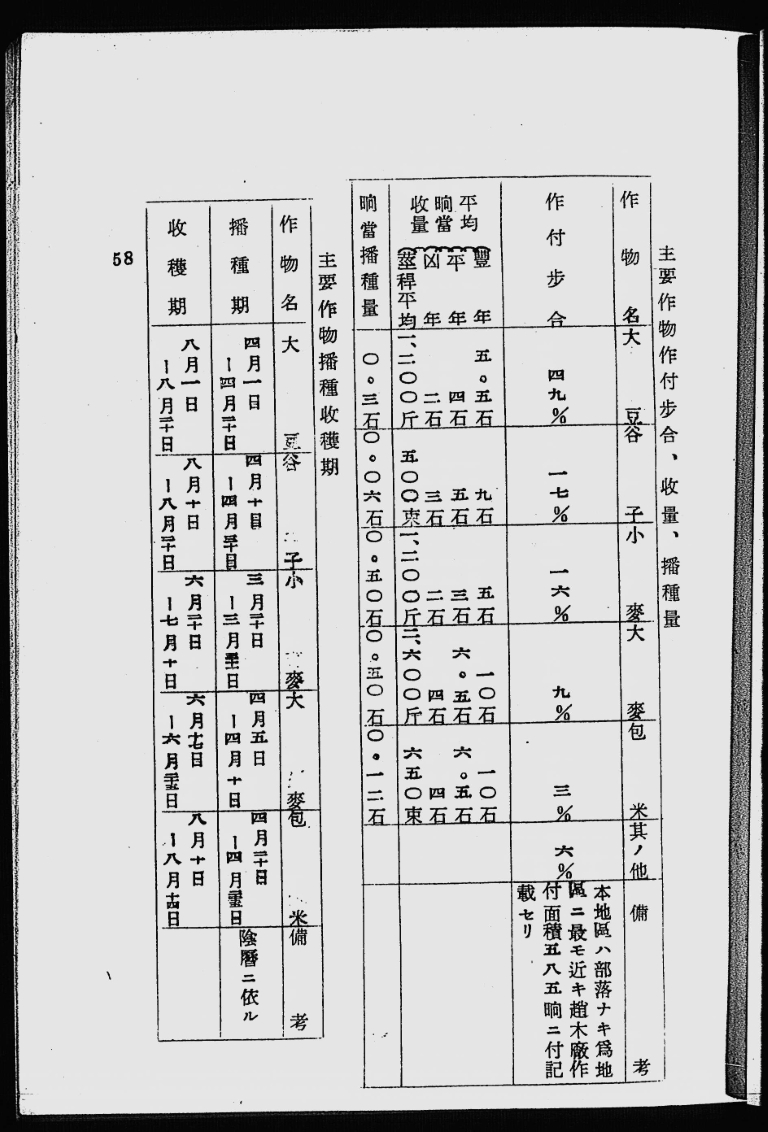 主要作物作付步合、收量、播種量
作物名 大豆 谷子 小麥 大麥 包米 其ノ他 備考
作付步合 四九% 一七% 一六% 九% 三% 六%
本地區ハ部落ナキ爲地
區ニ最モ近キ趙木廠作
付面積五八五晌ニ付記
載セリ
平均晌當收量
豐年 五。五石 九石 五石 一〇石 一〇石
平年 四石 五石 三石 六。五石 六。五石
凶年 二石 三石 二石 四石 四石
莖稈平均 一、二〇〇斤 五〇〇束 一、二〇〇斤 二、六〇〇斤 六五〇束
晌當播種量 〇。三石 〇。〇六石 〇。五〇石 〇。五〇石 〇。一二石
主要作物播種收穫期
作物名 大豆 谷子 小麥 大麥 包米 備考
播種期 四月一日ー四月二十日 四月十日ー四月三十日 三月二十日ー三月三十日 四月五日ー四月十日 四月二十日ー四月二十五日 陰曆ニ依ル
收穫期 八月一日ー八月二十日 八月十日ー八月二十日 六月二十日ー七月十日 六月十七日ー六月二十五日 八月十日ー八月十四日
58